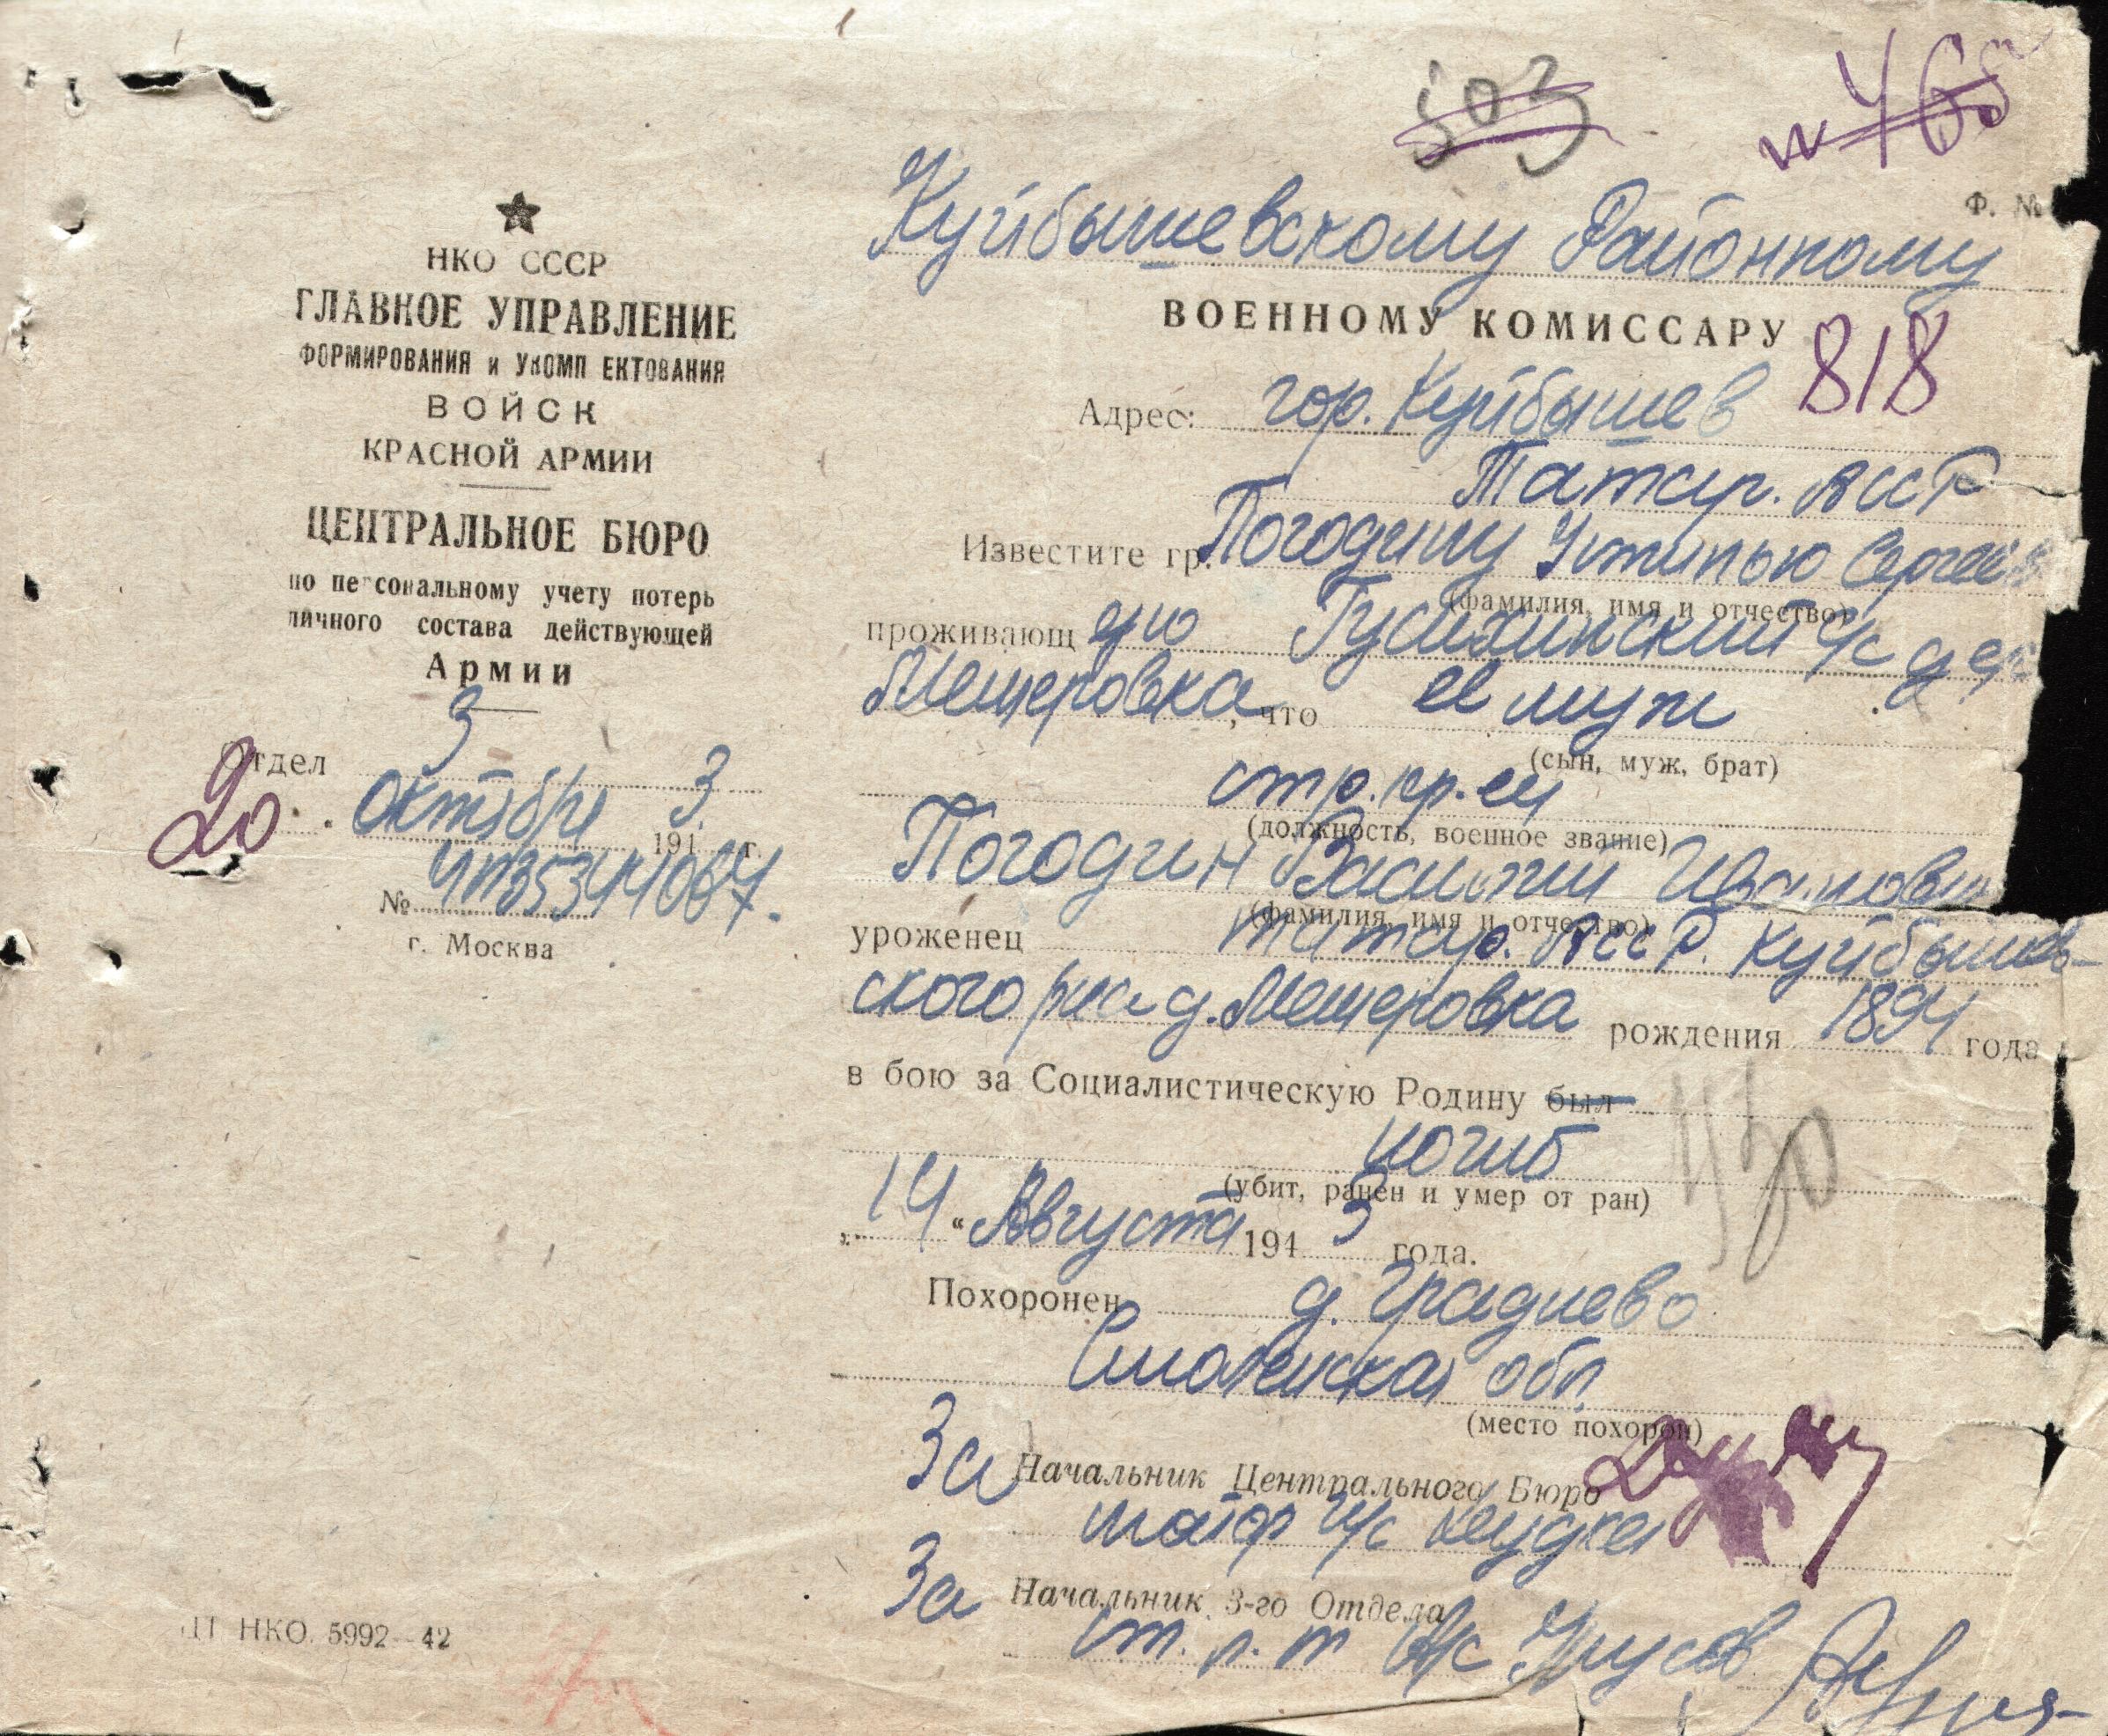 503
№ 465
Ф. №
НКО СССР
ГЛАВНОЕ УПРАВЛЕНИЕ
ФОРМИРОВАНИЯ и УКОМП ЕКТОВАНИЯ
ВОЙСК
КРАСНОЙ АРМИИ
ЦЕНТРАЛЬНОЕ БЮРО
по персональному учету потерь
личного состава действующей
Армии
Отдел 3
20 октября 194 3 г.
№
г. Москва
ЦТ НКО. 5992—42
Куйбышевскому Районному
ВОЕННОМУ КОМИССАРУ
818
Адрес: гор. Куйбышев
Татар. АССР
Известите гр. Погодину Устинью Сергеев
(фамилия, имя и отчество)
проживающ ую Гусихинский с/с дер
Мещеровка, что ее муж
(сын, муж, брат)
стр. кр-ец
(должность, военное звание)
Погодин Василий Иванович
(фамилия, имя и отчество)
уроженец Татар. АССР. Куйбышев-
ского р-на д. Мещеровка рождения 1894 года
в бою за Социалистическую Родину был
погиб
(убит, ранен и умер от ран)
14 " Августа 194 3 года.
Похоронен д. Граднево
Смоленская обл.
(место похорон)
За Начальник Центрального Бюро
майор а/с
За Начальник 3-го Отдела
ст. л-т а/с